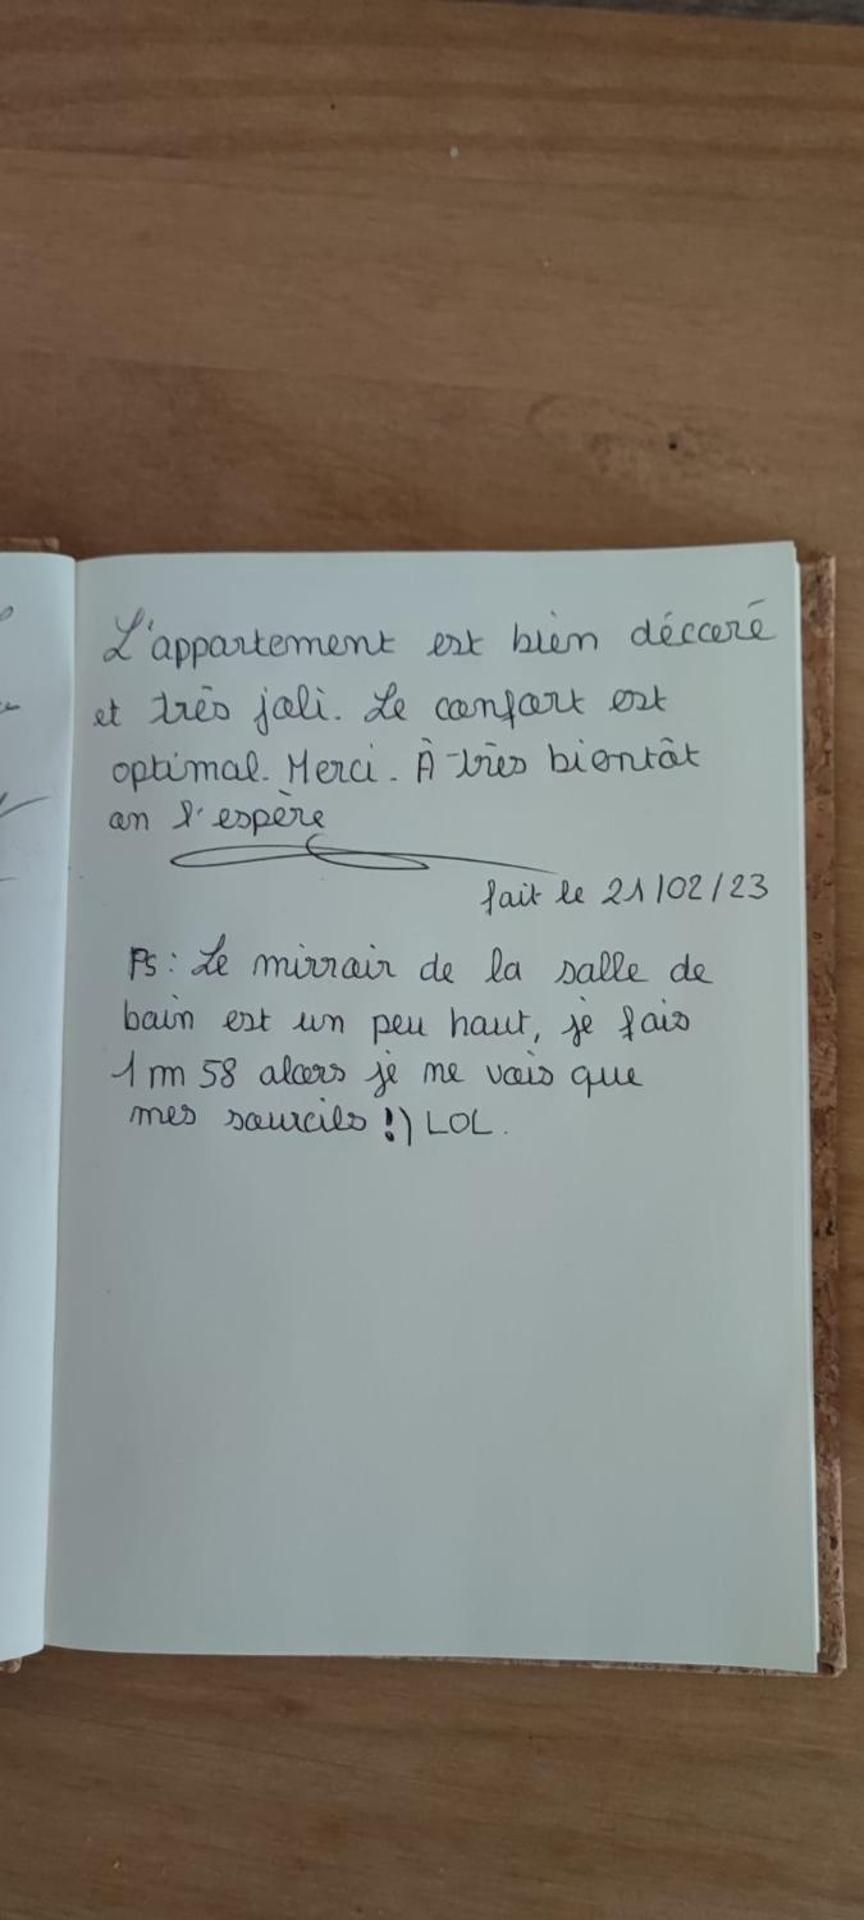 L'appartement est bien déccoré
et très joli. Le confort est
optimal. Merci. À très bientôt
on l'espère
fait le 21/02/23
Ps : Le mirroir de la salle de
bain est un peu haut, je fais
1m58 alors je me vois que
mes sourcils !) LOL.